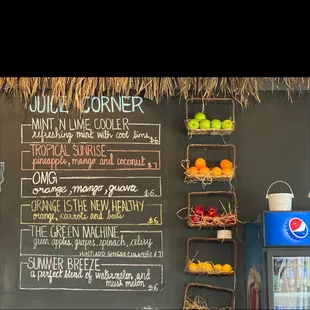 JUICE CORNER
MINT N LIME COOLER
refreshing mint with cool lime $6
TROPICAL SUNRISE
pineapple, mango and coconut $7
OMG
orange, mango, guava $6
ORANGE IS THE NEW, HEALTHY
orange, carrots and beets $6
THE GREEN MACHINE
green apples, grapes, spinach, celery
HINT: ADD GINGER $7
SUMMER BREEZE
a perfect blend of watermelon and
musk melon $6
pepsi